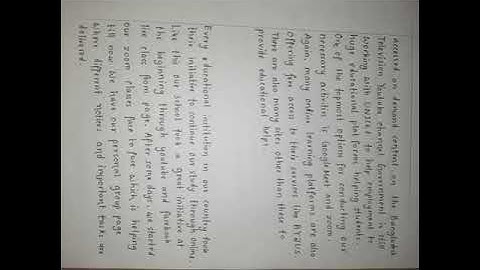 accessed on demand content on the Bangladesh
Television Youtube channel Government is still
working with UNICEF to help employment to
huge educational platforms helping students.
One of the topmost options for conducting our
necessary activities is Google Meet and zoom.
Again, many online learning platforms are also
offering free access to their services like BYJU'S.
There are also many sites other than these to
provide educational helps.
Every educational institution in our country took
their initiative to continue run study through online.
Like this our school took a great initiative at
the beginning through youtube and facebook
live class from page. After some days, we started
our zoom classes face to face which is helping
till now. We have our personal group page
where different notices and important tasks are
delivered.